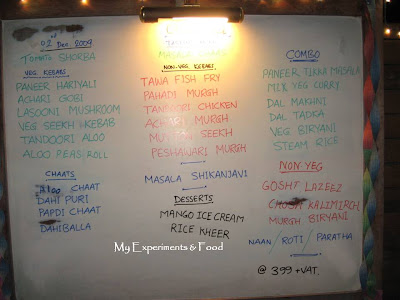 02 Dec 2009
Tomato SHORBA
VEG. KEBABS
PANEER HARIYALI
AGHARI GOBI
LASOONI MUSHROOM
VEG SEEKH KEBAB
TANDOORI ALOO
ALOO PEAS ROLL
CHAATS
ALOO CHAAT
DAHI PURI
PAPDI CHAAT
DAHI BALLA
NON-VEG. KEBABS
TAWA FISH FRY
PAHADI MURGH
TANDOORI CHICKEN
ACHARI MURGH
MUTTON SEEKH
PESHAWARI MURGH
MASALA SHIKANJAVI
DESSERTS
MANGO ICE CREAM
RICE KHEER
COMBO
PANEER TIKKA MASALA
MIX VEG CURRY
DAL MAKHNI
DAL TADKA
VEG BIRYANI
STEAM RICE
NON-VEG
GOSHT LAZEEZ
GHOSH KALIMIRCH
MURGH BIRYANI
NAAN / ROTI / PARATHA
@ 399 + VAT.
My Experiments & Food